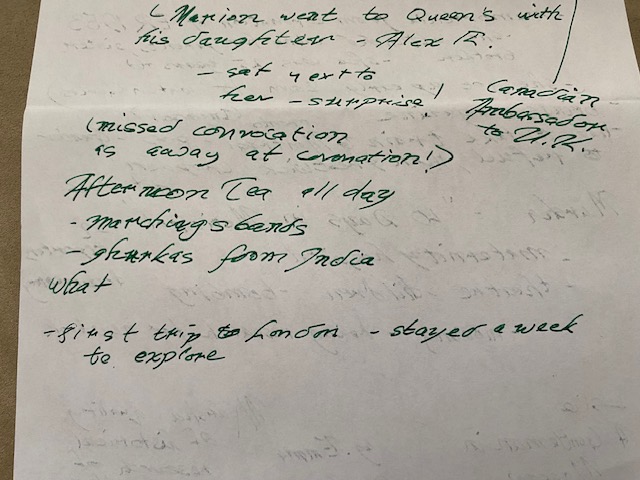 (Marion went to Queen's with
his daughter - Alex E.
- sat next to
her - surprise!
Canadian
Ambassador
to U.K.
(missed convocation
as away at coronation!)
Afternoon Tea all day
- marching bands
- ghurkas from India
what
- first trip to London - stayed a week
to explore